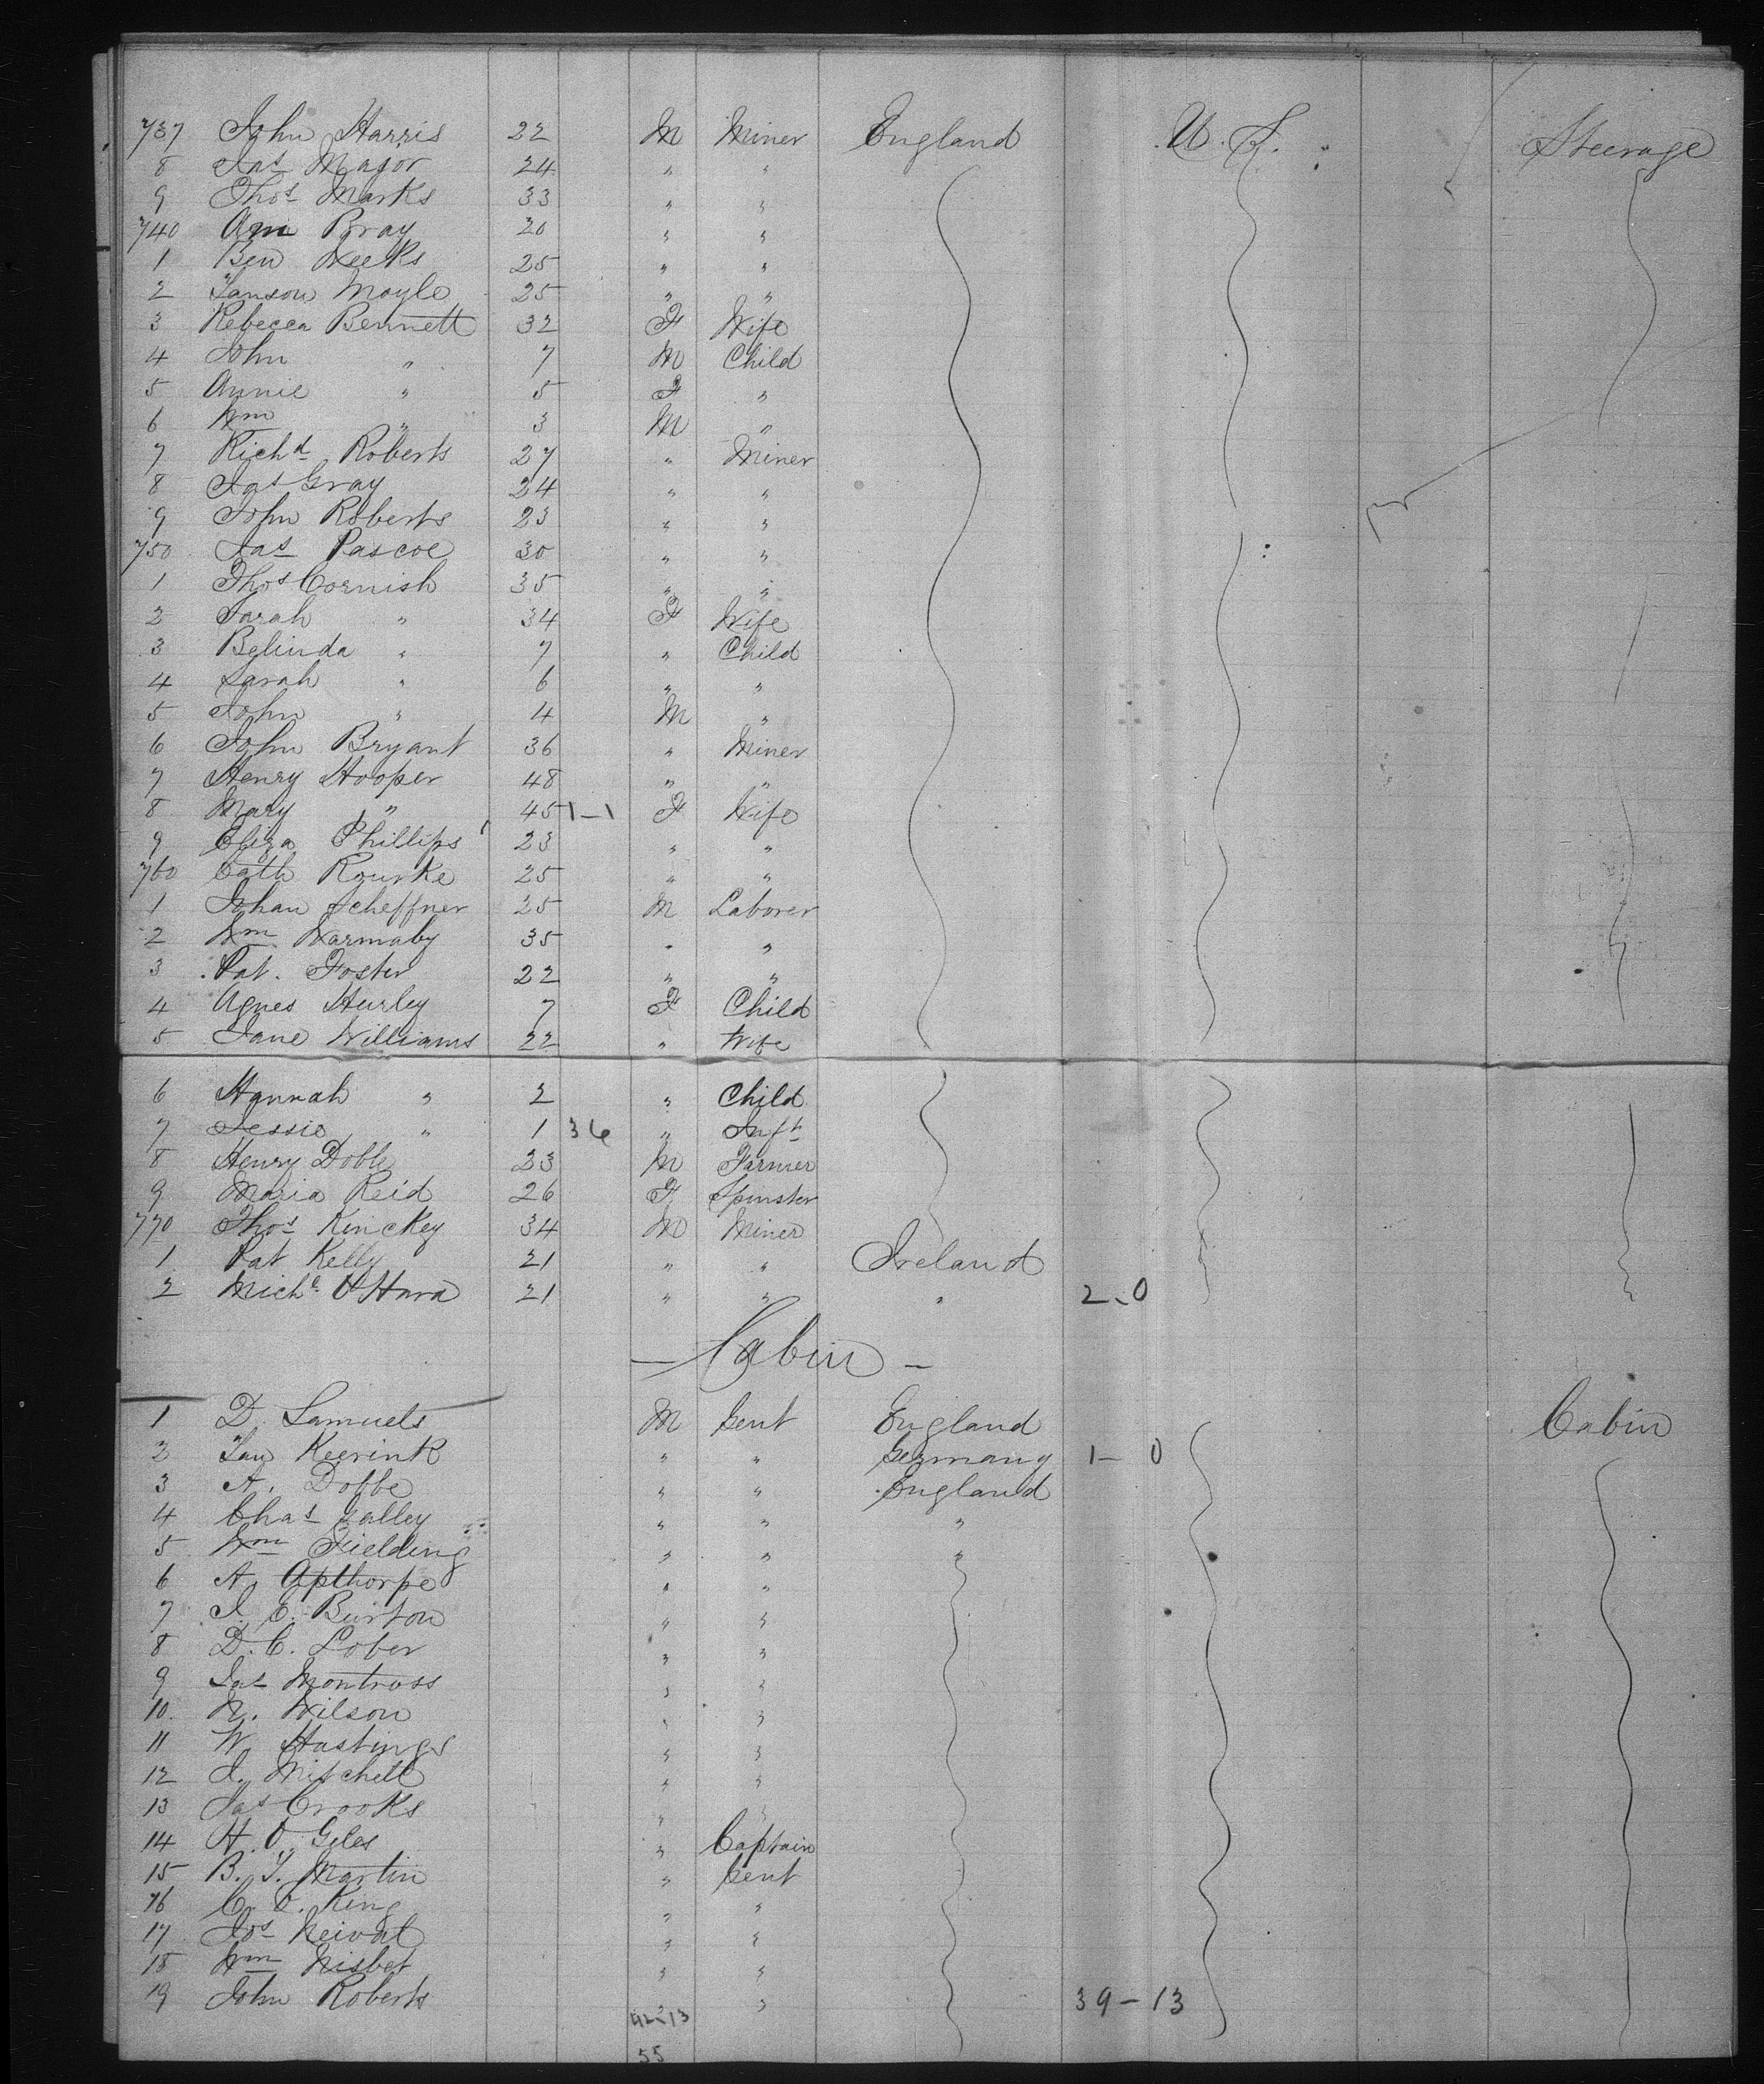 737 John Harris 22 M Miner England U.S. Steerage
8 Jas Major 24 " "
9 Thos Marks 33 " "
740 Bray 20 " "
1 Ben Weeks 25 " "
2 Moyle 25 " "
3 Rebecca Bennett 32 F Wife
4 John " 7 M Child
5 Annie " 5 F "
6 Wm " 3 M "
7 Richd Roberts 27 " Miner
8 Jas Gray 24 " "
9 John Roberts 23 " "
750 Jas Pascoe 30 " "
1 Thos Cornish 35 " "
2 Sarah " 34 F Wife
3 Belinda " 7 " Child
4 Sarah " 6 " "
5 John " 4 M "
6 John Bryant 36 " Miner
7 Henry Hooper 48 " "
8 Mary " 45 1-1 F Wife
9 Eliza Phillips 23 " "
760 Cath Rourke 25 " "
1 Johan Scheffner 25 M Laborer
2 Wm Warmaby 35 " "
3 Pat. Foster 22 " "
4 Agnes Hurley 7 F Child
5 Jane Williams 22 " Wife
6 Hannah " 2 " Child
7 Jessie " 1 36 " Inft
8 Henry Doble 23 M Farmer
9 Maria Reid 26 F Spinster
770 Thos Kinckey 34 M Miner
1 Pat Kelly 21 " " Ireland
2 Michl O'Hara 21 " " " 2-0
— Cabin —
1 D. Samuels M Gent England Cabin
2 Jan Keerink " " Germany 1-0
3 A. Dobbe " " England
4 Chas Galley " " "
5 Wm Fielding " " "
6 A. Apthorpe " "
7 J. E. Burton " "
8 D. C. Lober " "
9 Jas Montross " "
10. N. Wilson " "
11 W. Hastings " "
12 J. Mitchell " "
13 Jas Crooks " "
14 H. O. Giles " Captain
15 B. T. Martin " Gent
16 C. O. King " "
17 Jos " "
18 Wm Nisbet " "
19 John Roberts " " 39-13
42-13
55